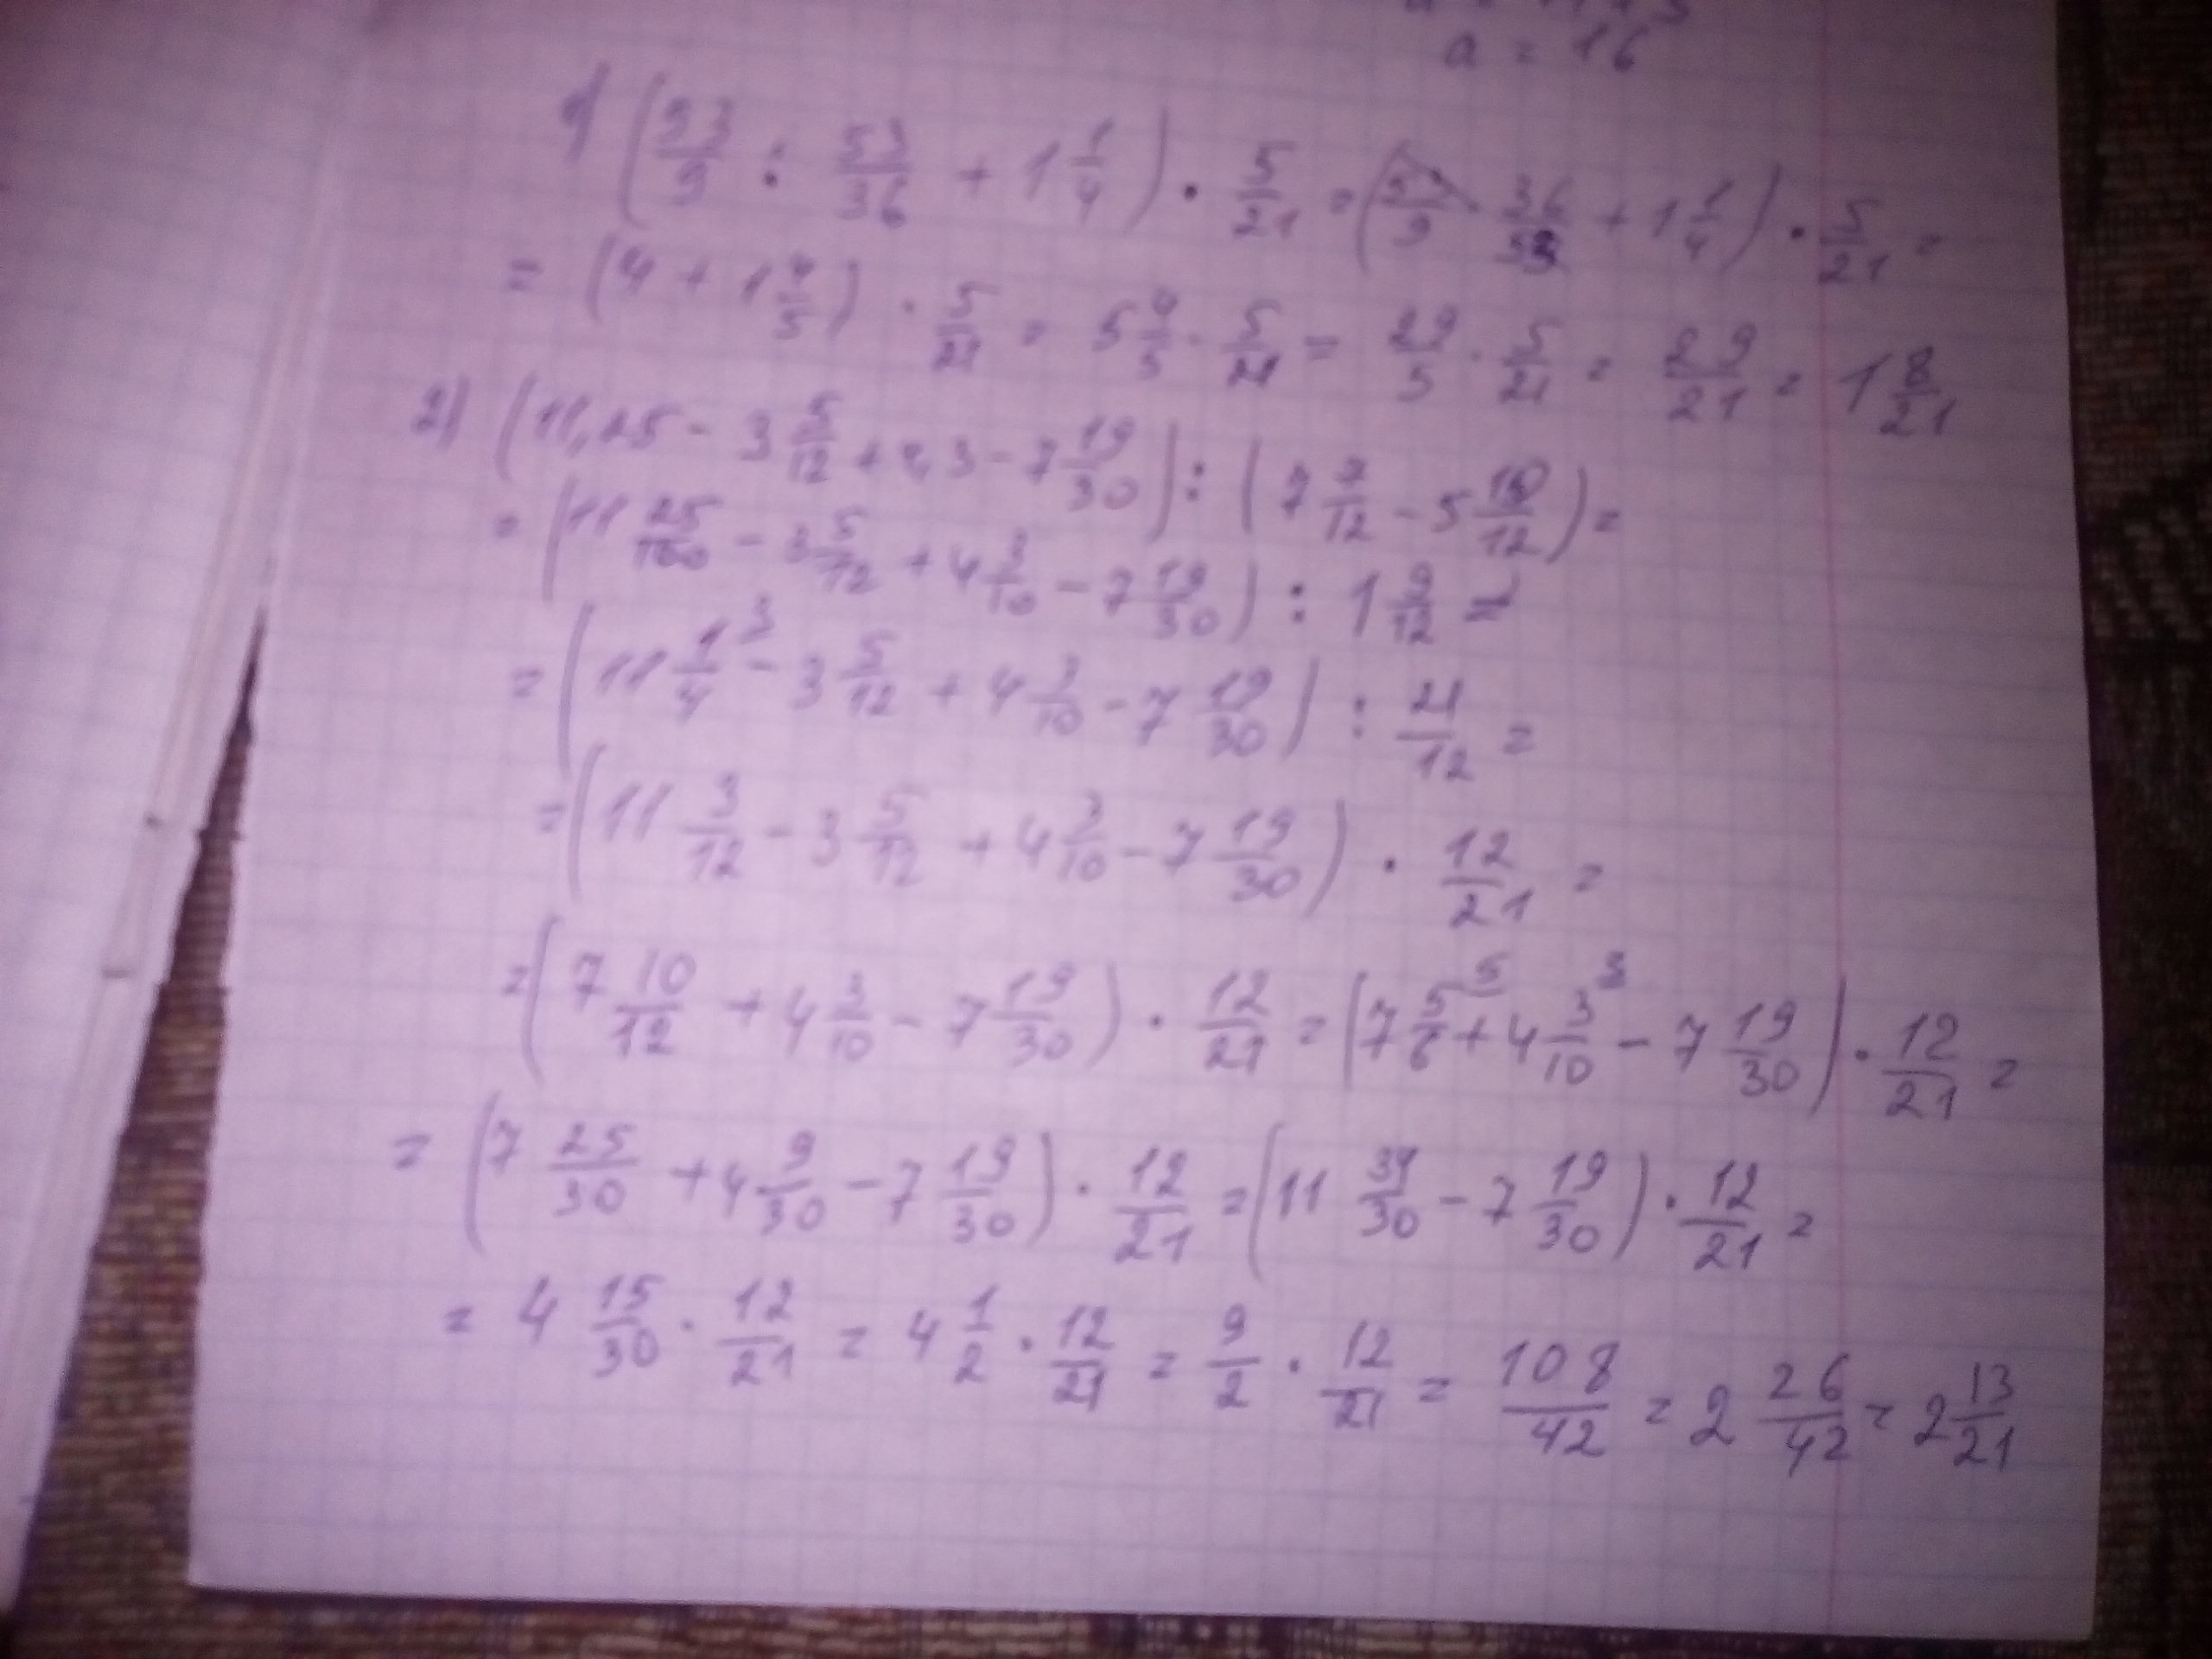 a = 16
1) (53/9 : 53/36 + 1 1/4) · 5/21 = (53/9 · 36/53 + 1 1/4) · 5/21 =
= (4 + 1 4/5) · 5/21 = 5 4/5 · 5/21 = 29/5 · 5/21 = 29/21 = 1 8/21
2) (11,25 - 3 5/12 + 4,3 - 7 19/30) : (7 7/12 - 5 10/12) =
= (11 25/100 - 3 5/12 + 4 3/10 - 7 19/30) : 1 9/12 =
= (11 1/4 3 - 3 5/12 + 4 3/10 - 7 19/30) : 21/12 =
= (11 3/12 - 3 5/12 + 4 3/10 - 7 19/30) · 12/21 =
= (7 10/12 + 4 3/10 - 7 19/30) · 12/21 = (7 5/6 5 + 4 3/10 3 - 7 19/30) · 12/21 =
= (7 25/30 + 4 9/30 - 7 19/30) · 12/21 = (11 34/30 - 7 19/30) · 12/21 =
= 4 15/30 · 12/21 = 4 1/2 · 12/21 = 9/2 · 12/21 = 108/42 = 2 26/42 = 2 13/21